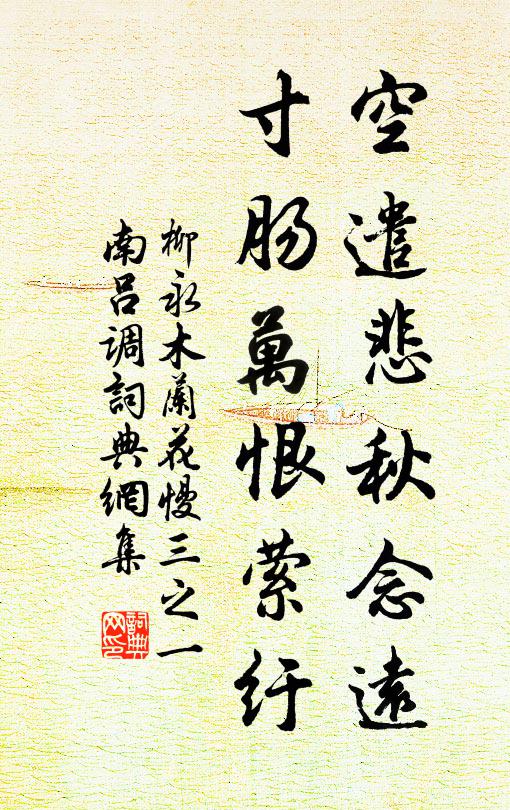 空遣悲秋念遠
寸肠萬恨萦纡
柳永木蘭花慢三之一
南吕调詞典網集
詞典
网印